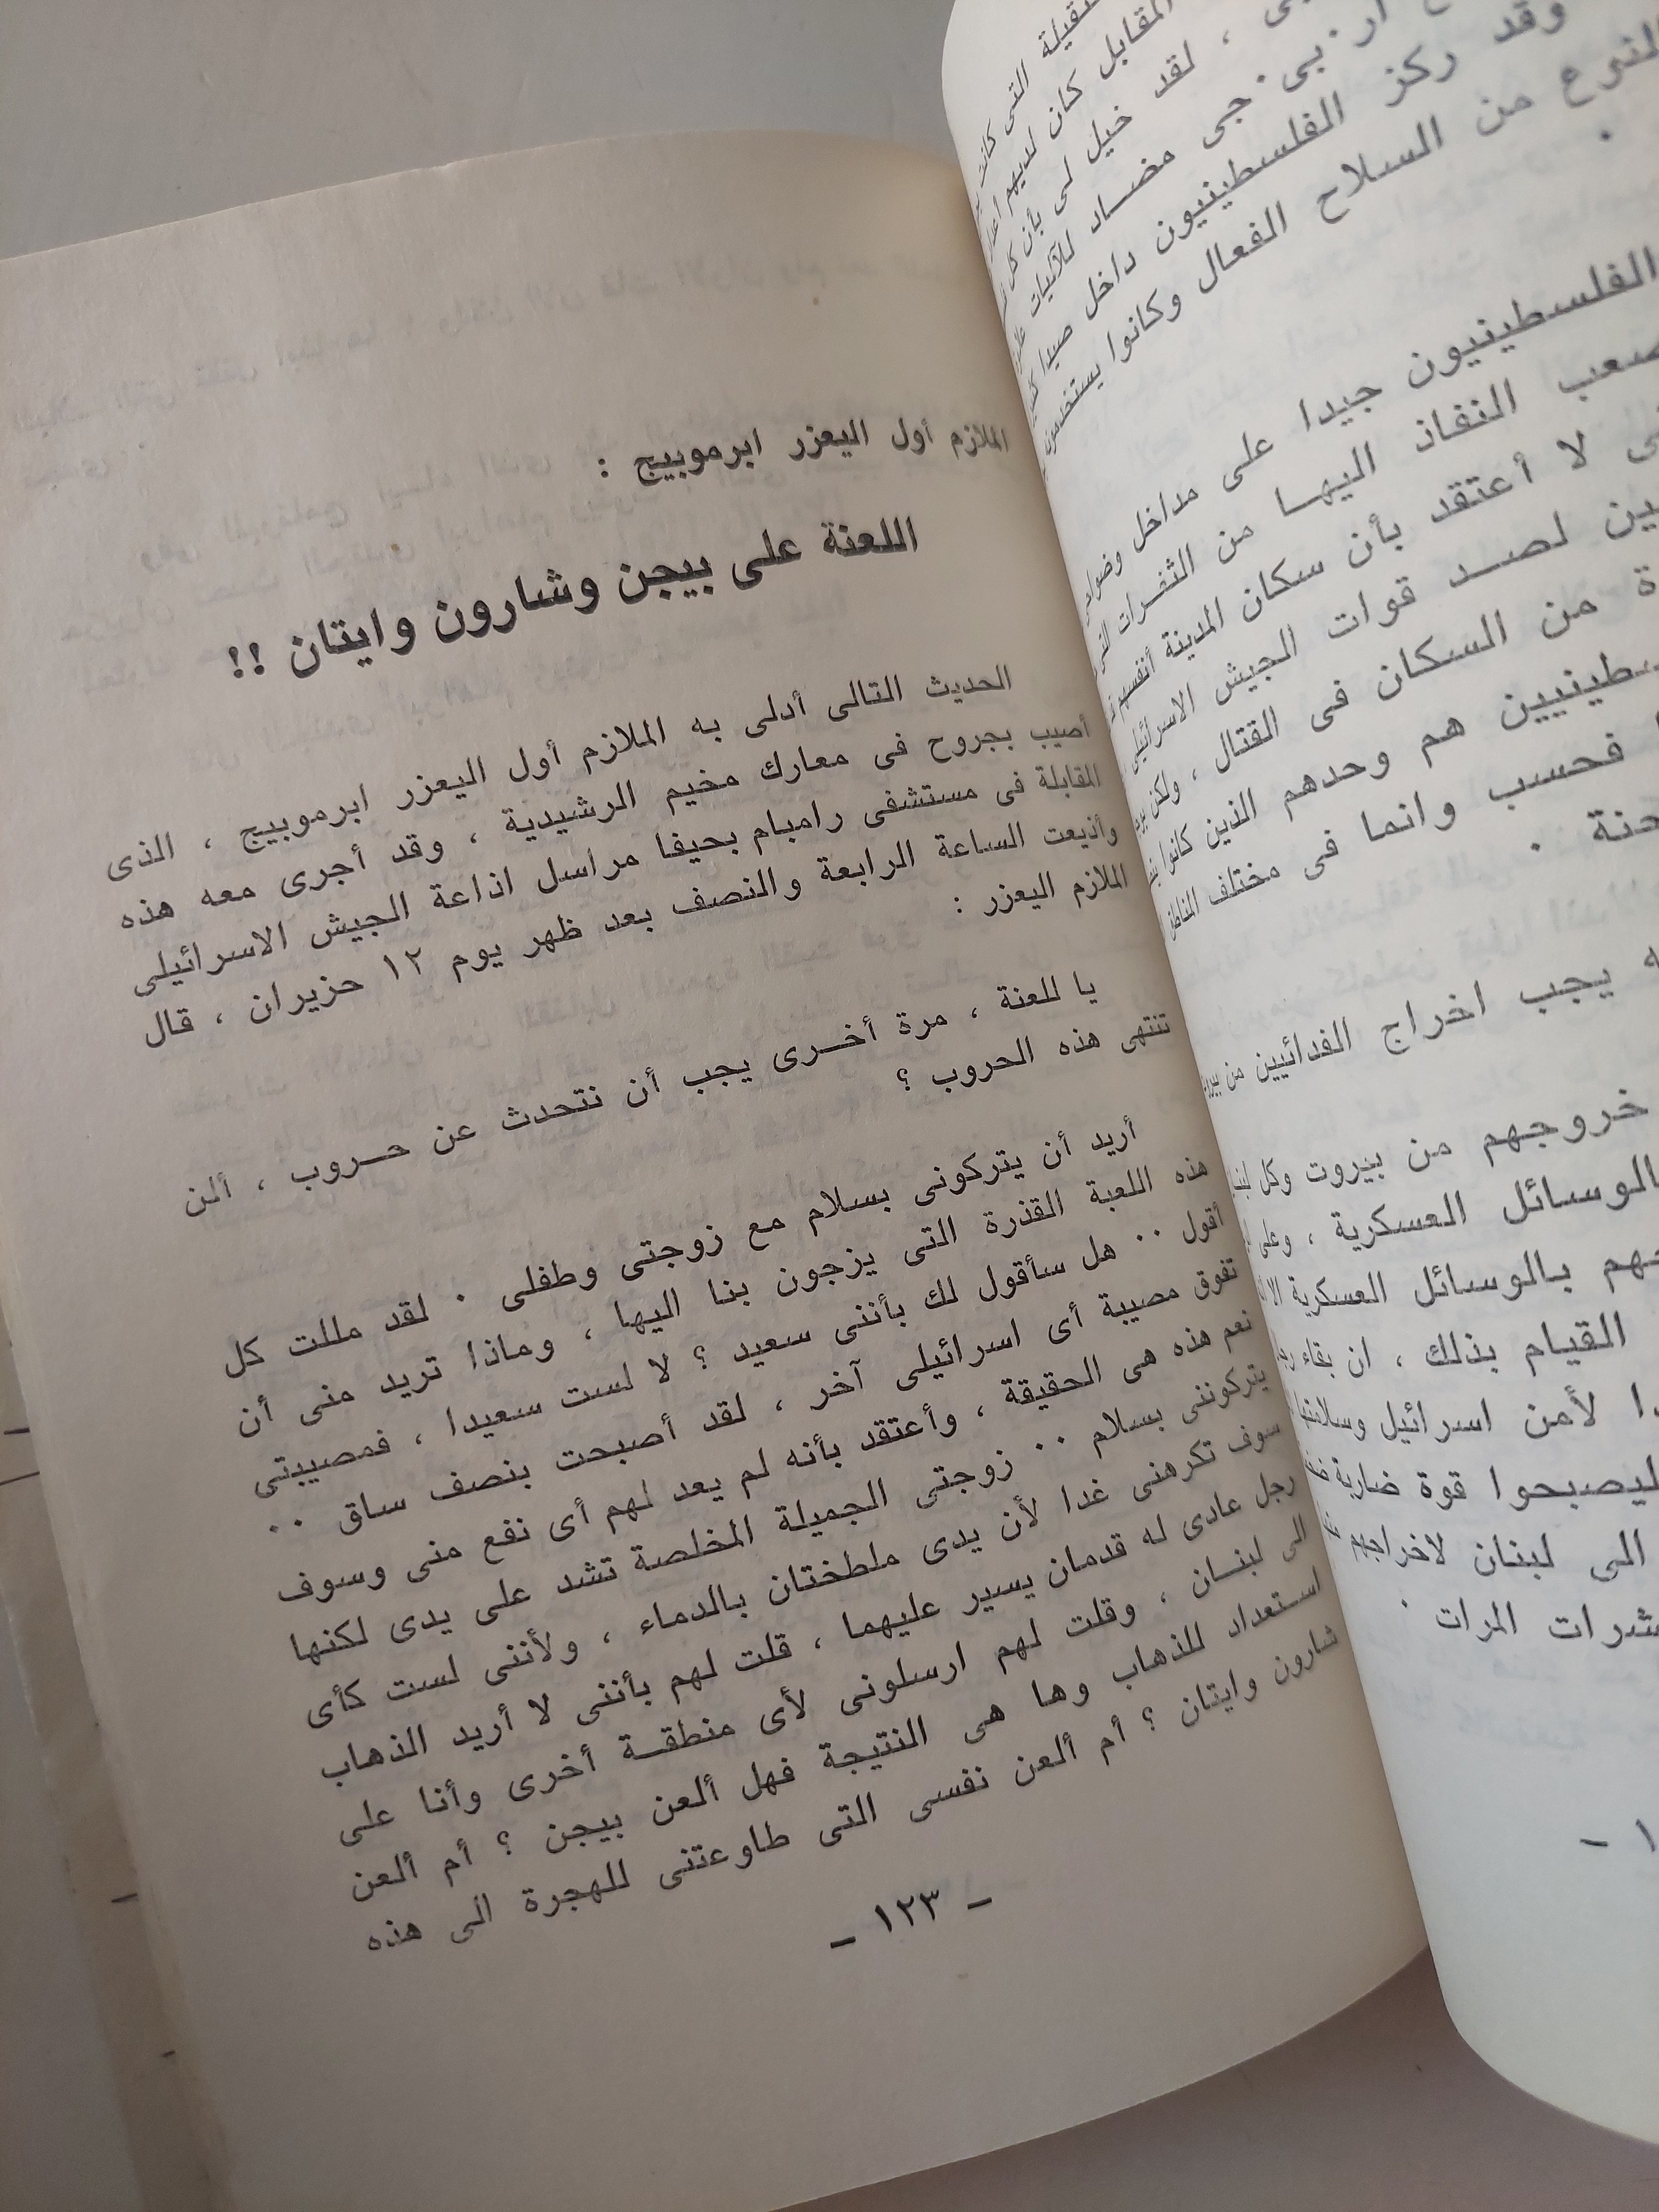 الملازم أول اليعزر ابرموبيج :
اللعنة على بيجن وشارون وايتان !!
الحديث التالى أدلى به الملازم أول اليعزر ابرموبيج ، الذى
أصيب بجروح فى معارك مخيم الرشيدية ، وقد أجرى معه هذه
المقابلة فى مستشفى رامبام بحيفا مراسل اذاعة الجيش الاسرائيلى
وأذيعت الساعة الرابعة والنصف بعد ظهر يوم ١٢ حزيران ، قال
الملازم اليعزر :
يا للعنة ، مرة أخرى يجب أن نتحدث عن حروب ، ألن
تنتهى هذه الحروب ؟
أريد أن يتركونى بسلام مع زوجتى وطفلى . لقد مللت كل
هذه اللعبة القذرة التى يزجون بنا اليها ، وماذا تريد منى أن
أقول .. هل سأقول لك بأننى سعيد ؟ لا لست سعيدا ، فمصيبتى
تفوق مصيبة أى اسرائيلى آخر ، لقد أصبحت بنصف ساق ..
نعم هذه هى الحقيقة ، وأعتقد بأنه لم يعد لهم أى نفع منى وسوف
يتركوننى بسلام .. زوجتى الجميلة المخلصة تشد على يدى لكنها
سوف تكرهنى غدا لأن يدى ملطختان بالدماء ، ولأننى لست كأى
رجل عادى له قدمان يسير عليهما ، قلت لهم بأننى لا أريد الذهاب
الى لبنان ، وقلت لهم ارسلونى لأى منطقة أخرى وأنا على
استعداد للذهاب وها هى النتيجة فهل ألعن بيجن ؟ أم ألعن
شارون وايتان ؟ أم ألعن نفسى التى طاوعتنى للهجرة الى هذه
– ١٢٣ –
التى كانت
المقابل كان لديهم
، لقد خيل لى بأن كل
ار.بى.جى مضاد للآليات
وقد ركز الفلسطينيون داخل صيدا
من السلاح الفعال وكانوا يستخدمون
الفلسطينيون جيدا على مداخل
النفاذ اليها من الثغرات
لا أعتقد بأن سكان المدينة أنفسهم
لصد قوات الجيش
من السكان فى القتال ، ولكن
هم وحدهم الذين كانوا
فحسب وانما فى مختلف
يجب اخراج الفدائيين من
خروجهم من بيروت وكل
بالوسائل العسكرية ، وعلى
بالوسائل العسكرية
القيام بذلك ، ان بقاء
لأمن اسرائيل وسلامتها
ليصبحوا قوة ضاربة
الى لبنان لاخراجهم
المرات .